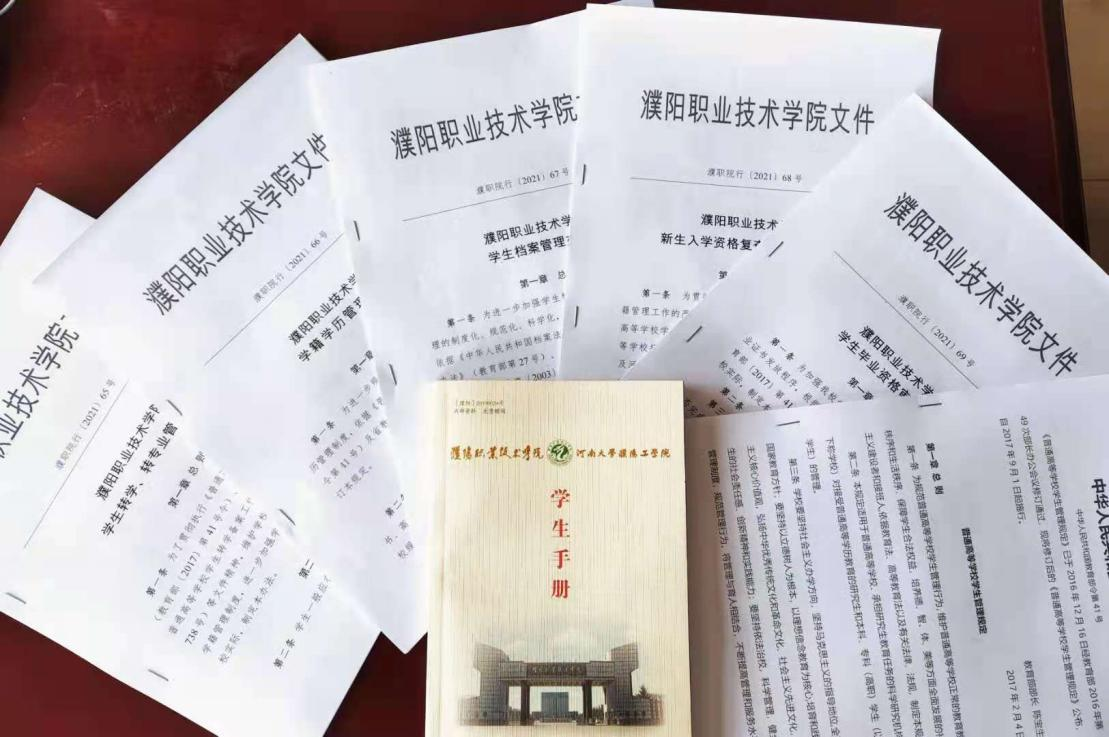 业技术学院
濮职院行〔2021〕65号
濮阳职业技术学
学生转学、转专业管
第一章 总
第一条 为了贯彻执行《普通
(教育部〔2017〕第41号令
普通高等学校学生转学备案工
738号)等文件精神,维护学校
学籍管理制度,进一步加强学
校实际,制定本办法。
第二
第二条 学生一般应
濮阳职业技术学院文件
濮职院行〔2021〕66号
濮阳职业技术学
学籍学历管理
第一章
第一条
为进一步规
历管理制度,依据《
令第41号)及省
订本规定。
濮阳职业技术学院
濮职院行〔2021〕67号
濮阳职业技术学
学生档案管理
第一章 总
第一条 为进一步加强学生
理的制度化、规范化、科学化,
依据《中华人民共和国档案法
(教育部第27号)、
(2003)
濮阳职业技术学院文件
濮职院行〔2021〕68号
濮阳职业技术
新生入学资格复
第
第一条 为贯
籍管理工作的严
高等学校学
等学校
濮阳职业技术学院文件
濮职院行〔2021〕69号
濮阳职业技术学
学生毕业资格
第一章
第一条 为加强我校
业证书发放程序,根
育部〔2017〕第41
校实际,制定本
内部资料 免费赠阅
濮阳职业技术学院 河南大学濮阳工学院
学生手册
中华人民共和
中华人民共和国教育部令第41号
《普通高等学校学生管理规定》已于2016年12月16日经教育部2016年第
49次部长办公会议修订通过,现将修订后的《普通高等学校学生管理规定》公布,
自2017年9月1日起施行。
教育部部长 陈宝生
2017年2月4日
普通高等学校学生管理规定
第一章 总 则
第一条 为规范普通高等学校学生管理行为,维护普通高等学校正常的教育教
秩序和生活秩序,保障学生合法权益,培养德、智、体、美等方面全面发展的社
主义建设者和接班人,依据教育法、高等教育法以及有关法律、法规,制定本规
第二条 本规定适用于普通高等学校、承担研究生教育任务的科学研究机构
下称学校)对接受普通高等学历教育的研究生和本科、专科(高职)学生(以
学生)的管理。
第三条 学校要坚持社会主义办学方向,坚持马克思主义的指导地位,全
国家教育方针;要坚持以立德树人为根本,以理想信念教育为核心,培育和践
主义核心价值观,弘扬中华优秀传统文化和革命文化、社会主义先进文化,
生的社会责任感、创新精神和实践能力;要坚持依法治校,科学管理,健
管理制度,规范管理行为,将管理与育人相结合,不断提高管理和服务水